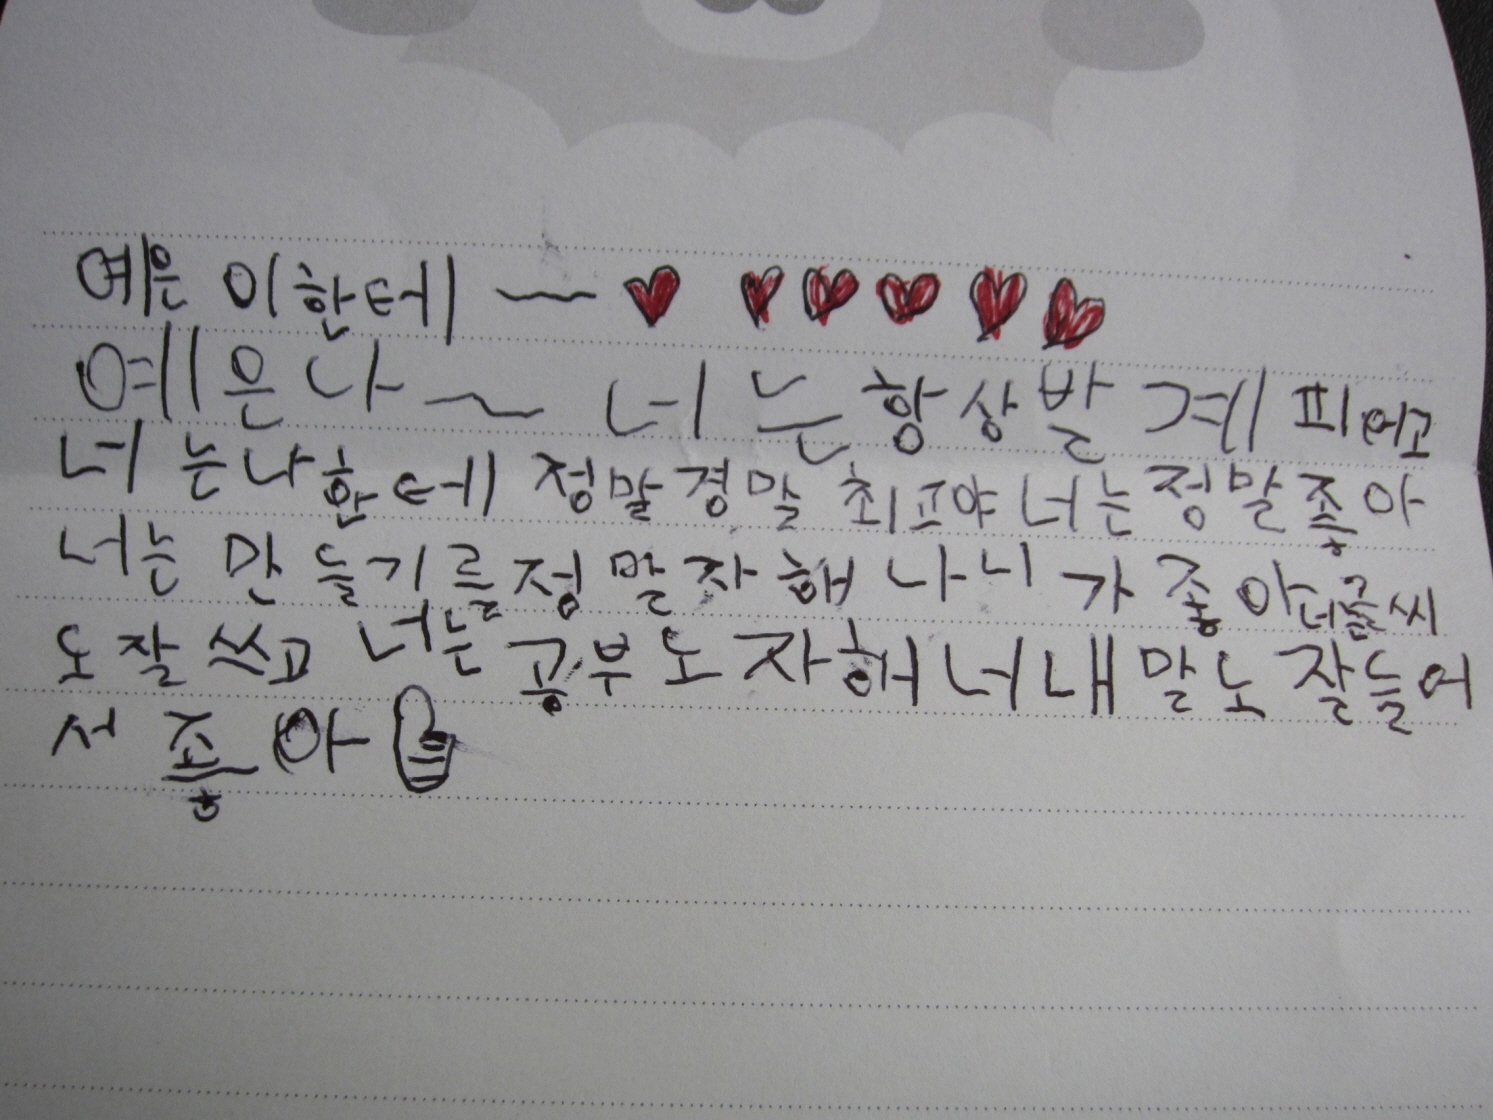 예은이한테 ~ ♥ ♥ ♥ ♥ ♥ ♥
예은나 ~ 너는항상발계피어고
너는나한테 정말경말 최고야 너는정말좋아
너는 만들기르정말자해 나 니가 좋아너글씨
도잘쓰고 너는공부노자해너내말노잘들어
서 좋아